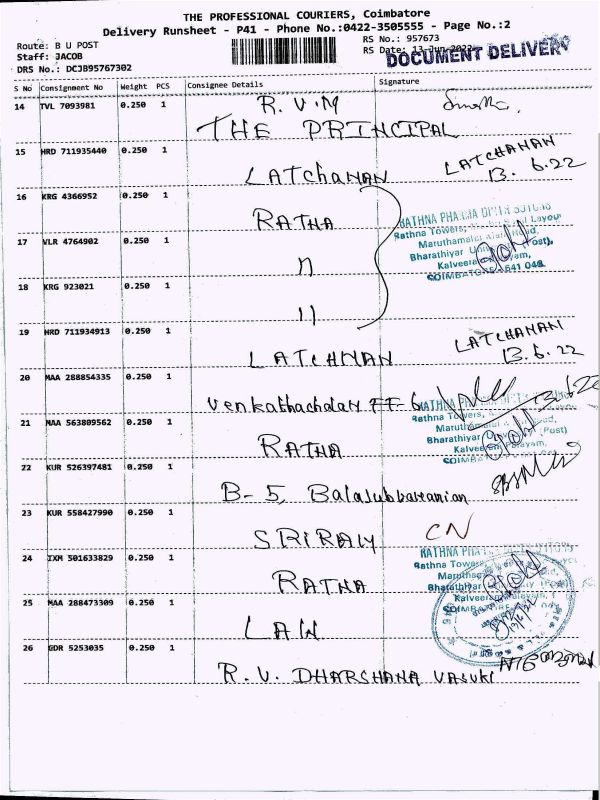 THE PROFESSIONAL COURIERS, Coimbatore
Delivery Runsheet - P41 - Phone No.:0422-3505555 - Page No.:2
Route: B U POST
Staff: JACOB
DRS No.: DCJB95767302
RS No.: 957673
RS Date: 13-Jun-2022
DOCUMENT DELIVERY
S No Consignment No Weight PCS Consignee Details Signature
14 TVL 7093981 0.250 1 R.V.M
THE PRINCIPAL
15 HRD 711935440 0.250 1
LATChANAN
LATCHANAN
13.6.22
16 KRG 4366952 0.250 1
RATHA
RATHNA PHARMA DISTRIBUTORS
Rathna Towers, Layout
Maruthamalai Road,
Bharathiyar Post),
COIMBATORE-641 046.
17 VLR 4764902 0.250 1
"
18 KRG 923021 0.250 1
11
19 HRD 711934913 0.250 1
LATCHNAN
LATCHANAN
13.6.22
20 MAA 288854335 0.250 1
Venkathachalam FF 6
21 MAA 563809562 0.250 1
RATHA
Rathna Towers,
Bharathiyar (Post)
22 KUR 526397481 0.250 1
B-5, Balasubbramanian
23 KUR 558427990 0.250 1
SRIRAM
CN
24 IXM 501633829 0.250 1
RATHA
25 MAA 288473309 0.250 1
LAW
26 GDR 5253035 0.250 1
R.V. DHARSHANA VASUKI